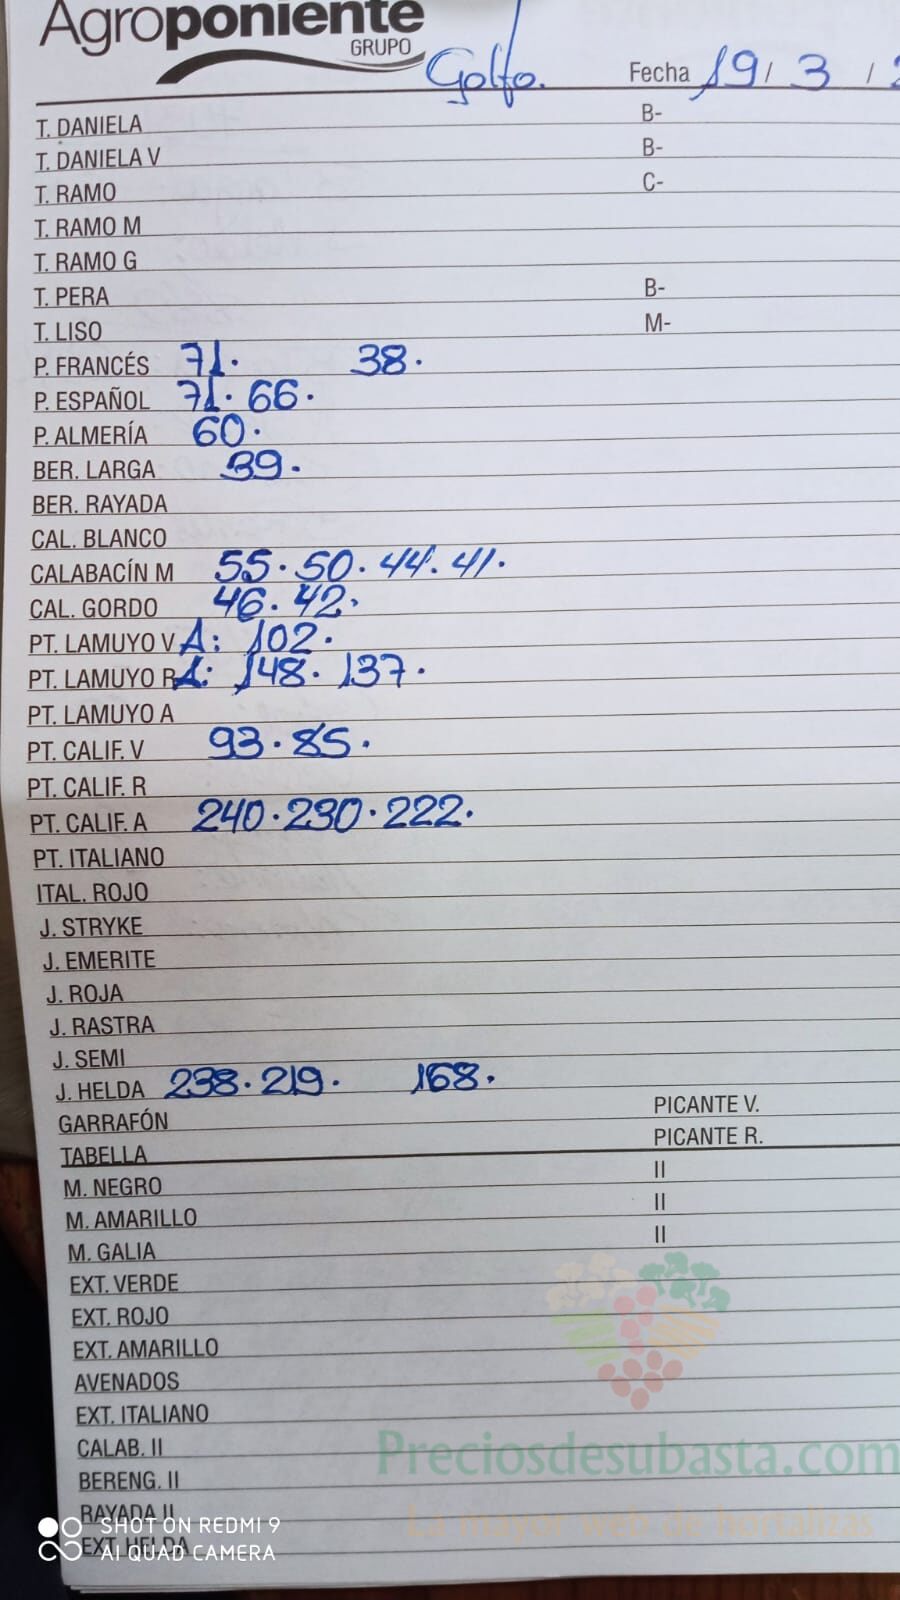 Agroponiente
GRUPO
Golfo. Fecha 19/ 3 /
T. DANIELA B-
T. DANIELA V B-
T. RAMO C-
T. RAMO M
T. RAMO G
T. PERA B-
T. LISO M-
P. FRANCÉS 71. 38.
P. ESPAÑOL 71. 66.
P. ALMERÍA 60.
BER. LARGA 39.
BER. RAYADA
CAL. BLANCO
CALABACÍN M 55. 50. 44. 41.
CAL. GORDO 46. 42.
PT. LAMUYO V A: 102.
PT. LAMUYO R A: 148. 137.
PT. LAMUYO A
PT. CALIF. V 93. 85.
PT. CALIF. R
PT. CALIF. A 240. 230. 222.
PT. ITALIANO
ITAL. ROJO
J. STRYKE
J. EMERITE
J. ROJA
J. RASTRA
J. SEMI
J. HELDA 238. 219. 168.
GARRAFÓN PICANTE V.
TABELLA PICANTE R.
M. NEGRO II
M. AMARILLO II
M. GALIA II
EXT. VERDE
EXT. ROJO
EXT. AMARILLO
AVENADOS
EXT. ITALIANO
CALAB. II
BERENG. II
RAYADA II
EXT. HELDA
Preciosdesubasta.com
La mayor web de hortalizas
SHOT ON REDMI 9
AI QUAD CAMERA